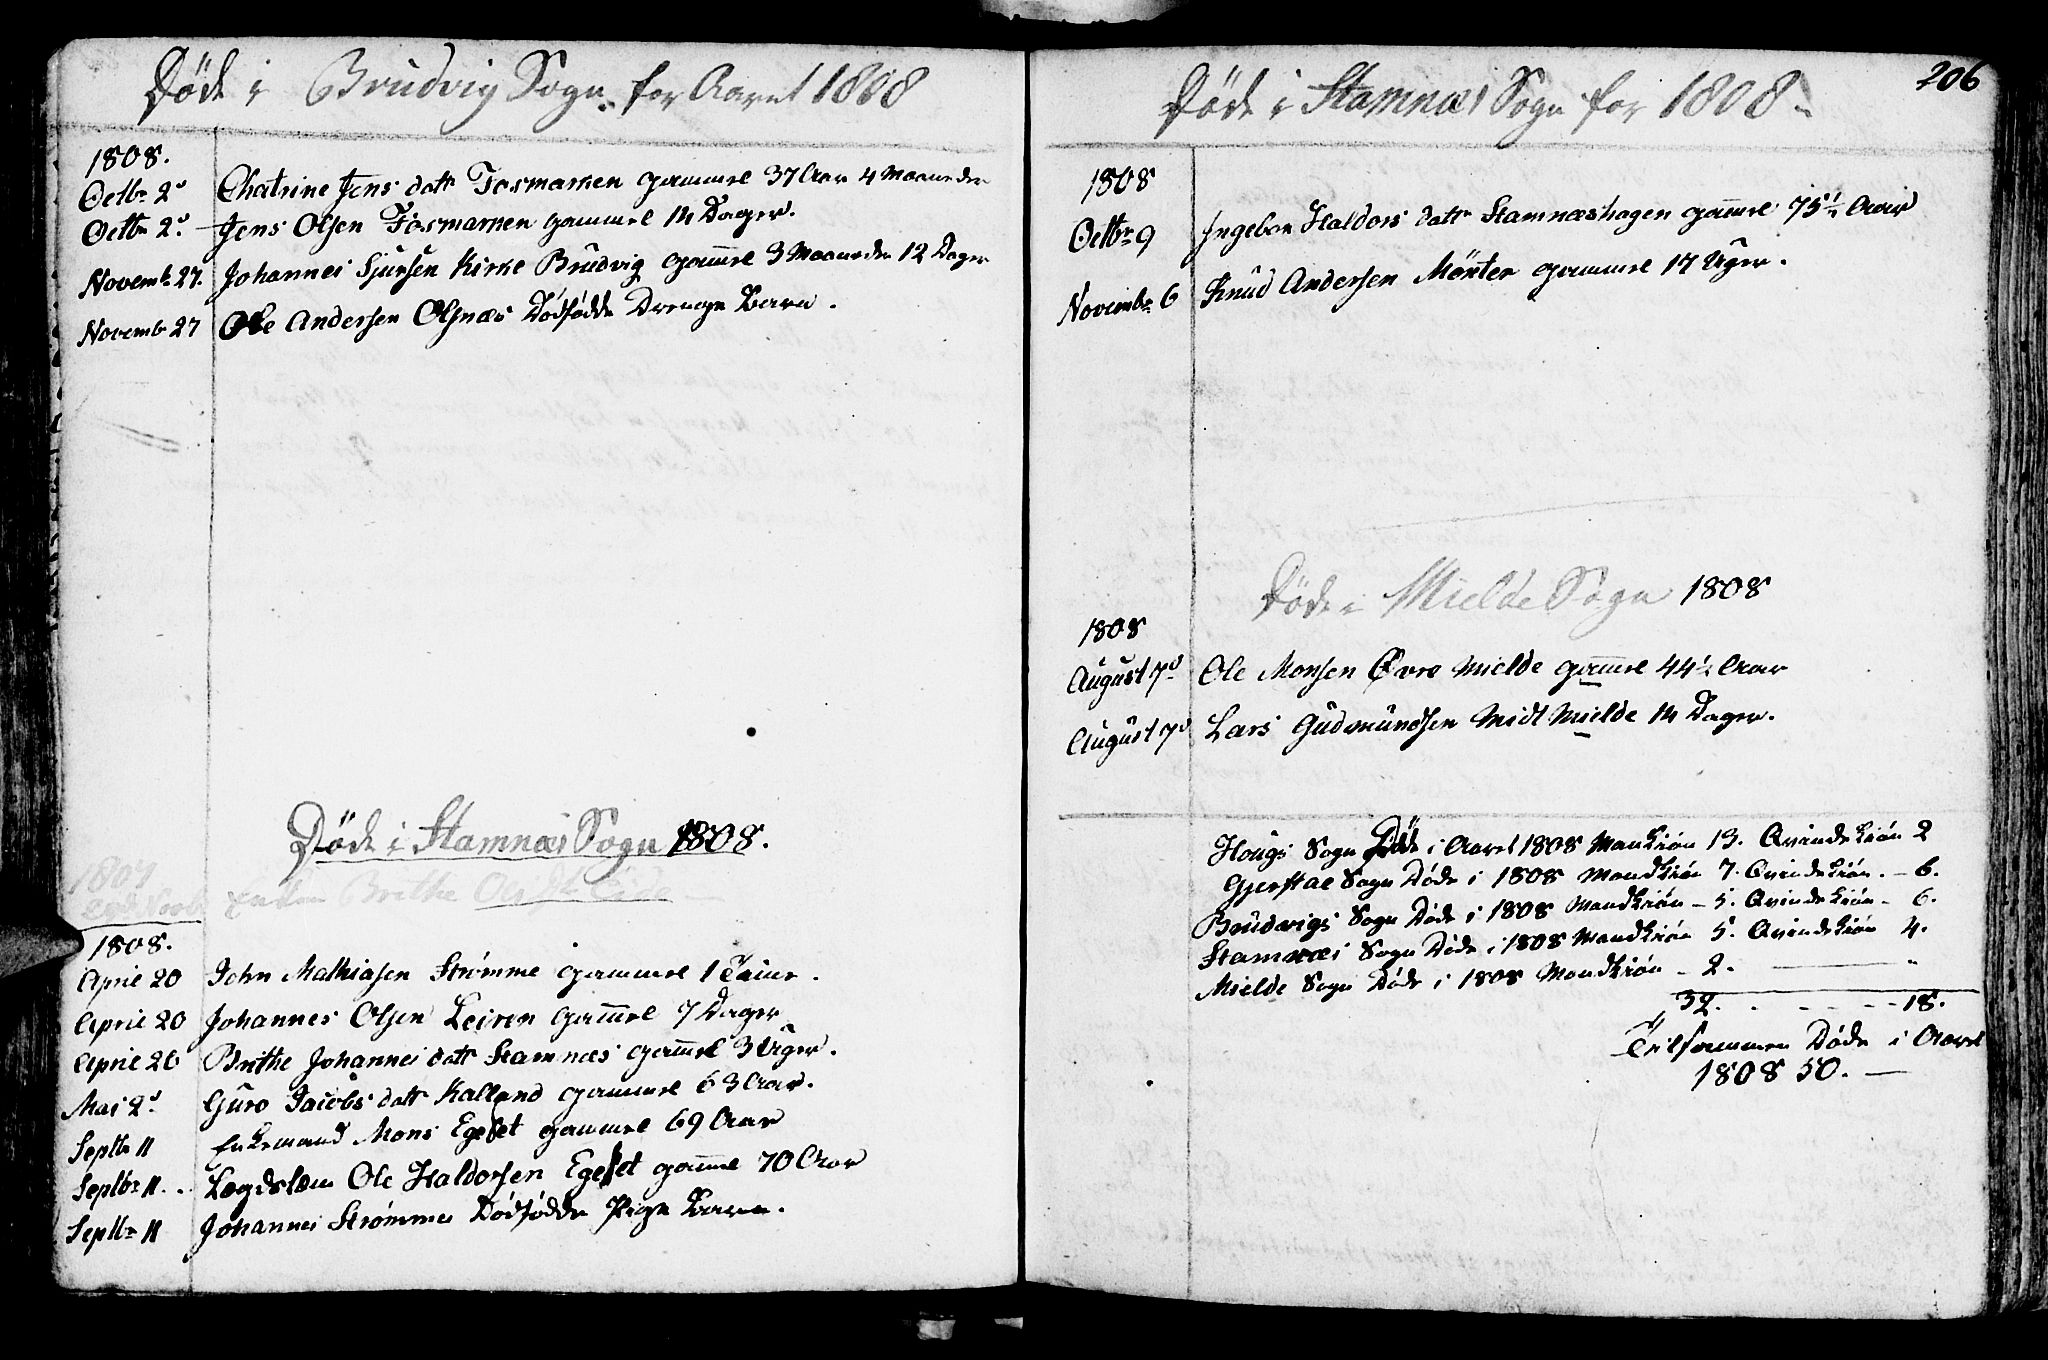 Døde i Brudvig Sogn for Aaret 1808
1808.
Octbr 2d Chatrine Jens datt Fosmarken gammel 37 Aar 4 Maaneder
Octbr 2d Jens Olsen Fosmarken gammel 14 Dager.
Novemb. 27. Johannes Sjursen Kirke Brudvig gammel 3 Maaneder 12 Dager
Novemb 27 Ole Andersen Olsnæs Dødfødde Drenge Barn.
Døde i Stamnæs Sogn 1808.
1807
Enken Brithe Eide
1808.
April 20 John Mathiasen Strømme gammel 1 Time.
April 20 Johannes Olsen Leiren gammel 7 Dager
April 26 Brithe Johannes datt Stamnæs gammel 3 Uger.
Mai 2d Guro Jacobs datt Kalland gammel 63 Aar.
Septbr 11 Enkemand Mons Egeset gammel 69 Aar
Septbr 11. Lægdslem Ole Haldorsen Egeset gammel 70 Aar
Septbr 11 Johannes Strømmes Dødfødde Pige Barn.
206
Døde i Stamnæs Sogn for 1808
1808
Octbr 9 Ingebor Haldors datt Stamnæshagen gammel 75½ Aar
Novembr 6 Knud Andersen Mørter gammel 17 Uger.
Døde i Mielde Sogn 1808
1808
August 7d Ole Monsen Øvre Mielde gammel 44½ Aar
August 7d Lars Gudmundsen Midt Mielde 14 Dager.
Hougs Sogn Døde i Aaret 1808 Mankiøn 13. Qvindekiøn 2
Gjerstad Sogn Døde i 1808 Mandkiøn 7. Qvindekiøn. – 6.
Brudvigs Sogn Døde i 1808 Mandkiøn – 5. Qvindekiøn – 6.
Stamnæs Sogn Døde i 1808 Mandkiøn 5. Qvindekiøn 4.
Mielde Sogn Døde i 1808 Mandkiøn – 2. — "
32. - - - - 18.
Tilsammen Døde i Aaret
1808 50. —